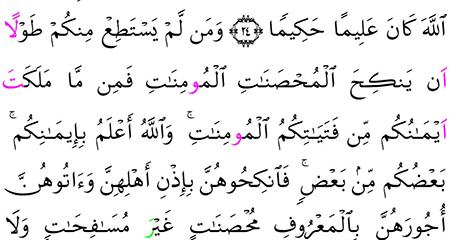 اللَّهَ كَانَ عَلِيمًا حَكِيمًا ﴿٢٤﴾ وَمَن لَّمْ يَسْتَطِعْ مِنكُمْ طَوْلًا
اَن يَنكِحَ الْمُحْصَنَٰتِ الْمُومِنَٰتِ فَمِن مَّا مَلَكَتَ
اَيْمَٰنُكُم مِّن فَتَيَٰتِكُمُ الْمُومِنَٰتِ ۚ وَاللَّهُ أَعْلَمُ بِإِيمَٰنِكُم ۚ
بَعْضُكُم مِّنۢ بَعْضٍ ۚ فَانكِحُوهُنَّ بِإِذْنِ أَهْلِهِنَّ وَءَاتُوهُنَّ
أُجُورَهُنَّ بِالْمَعْرُوفِ مُحْصَنَٰتٍ غَيْرَ مُسَٰفِحَٰتٍ وَلَا